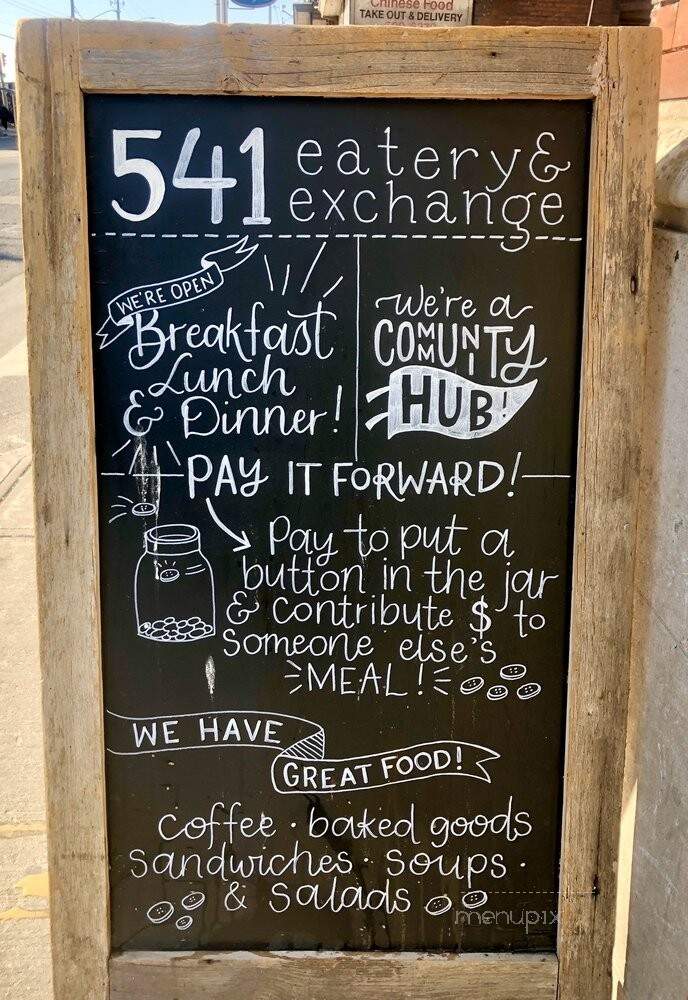 Chinese Food
TAKE OUT & DELIVERY
541 eatery &
exchange
WE'RE OPEN
Breakfast
Lunch
& Dinner!
We're a
COMMUNITY
HUB!
PAY IT FORWARD!
Pay to put a
button in the jar
& contribute $ to
someone else's
MEAL!
WE HAVE
GREAT FOOD!
coffee · baked goods
sandwiches · soups ·
& salads
menupix